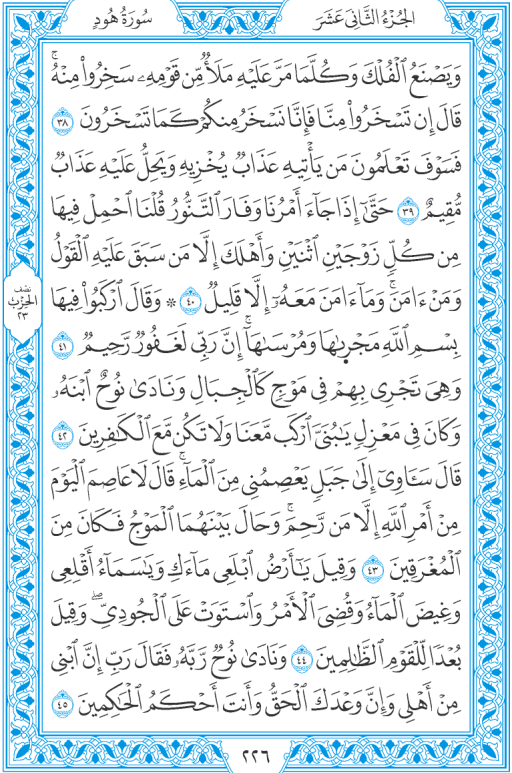 الجُزْءُ الثَّانِي عَشَرَ
سُورَةُ هُودٍ
وَيَصْنَعُ ٱلْفُلْكَ وَكُلَّمَا مَرَّ عَلَيْهِ مَلَأٌ مِّن قَوْمِهِۦ سَخِرُوا۟ مِنْهُ ۚ
قَالَ إِن تَسْخَرُوا۟ مِنَّا فَإِنَّا نَسْخَرُ مِنكُمْ كَمَا تَسْخَرُونَ ٣٨
فَسَوْفَ تَعْلَمُونَ مَن يَأْتِيهِ عَذَابٌ يُخْزِيهِ وَيَحِلُّ عَلَيْهِ عَذَابٌ
مُّقِيمٌ ٣٩ حَتَّىٰٓ إِذَا جَآءَ أَمْرُنَا وَفَارَ ٱلتَّنُّورُ قُلْنَا ٱحْمِلْ فِيهَا
مِن كُلٍّ زَوْجَيْنِ ٱثْنَيْنِ وَأَهْلَكَ إِلَّا مَن سَبَقَ عَلَيْهِ ٱلْقَوْلُ
وَمَنْ ءَامَنَ ۚ وَمَآ ءَامَنَ مَعَهُۥٓ إِلَّا قَلِيلٌ ٤٠ ۞ وَقَالَ ٱرْكَبُوا۟ فِيهَا
بِسْمِ ٱللَّهِ مَجْر۪ىٰهَا وَمُرْسَىٰهَآ ۚ إِنَّ رَبِّى لَغَفُورٌ رَّحِيمٌ ٤١
وَهِىَ تَجْرِى بِهِمْ فِى مَوْجٍ كَٱلْجِبَالِ وَنَادَىٰ نُوحٌ ٱبْنَهُۥ
وَكَانَ فِى مَعْزِلٍ يَـٰبُنَىَّ ٱرْكَب مَّعَنَا وَلَا تَكُن مَّعَ ٱلْكَـٰفِرِينَ ٤٢
قَالَ سَـَٔاوِىٓ إِلَىٰ جَبَلٍ يَعْصِمُنِى مِنَ ٱلْمَآءِ ۚ قَالَ لَا عَاصِمَ ٱلْيَوْمَ
مِنْ أَمْرِ ٱللَّهِ إِلَّا مَن رَّحِمَ ۚ وَحَالَ بَيْنَهُمَا ٱلْمَوْجُ فَكَانَ مِنَ
ٱلْمُغْرَقِينَ ٤٣ وَقِيلَ يَـٰٓأَرْضُ ٱبْلَعِى مَآءَكِ وَيَـٰسَمَآءُ أَقْلِعِى
وَغِيضَ ٱلْمَآءُ وَقُضِىَ ٱلْأَمْرُ وَٱسْتَوَتْ عَلَى ٱلْجُودِىِّ ۖ وَقِيلَ
بُعْدًا لِّلْقَوْمِ ٱلظَّـٰلِمِينَ ٤٤ وَنَادَىٰ نُوحٌ رَّبَّهُۥ فَقَالَ رَبِّ إِنَّ ٱبْنِى
مِنْ أَهْلِى وَإِنَّ وَعْدَكَ ٱلْحَقُّ وَأَنتَ أَحْكَمُ ٱلْحَـٰكِمِينَ ٤٥
نصف
الحزب
٢٣
٢٢٦